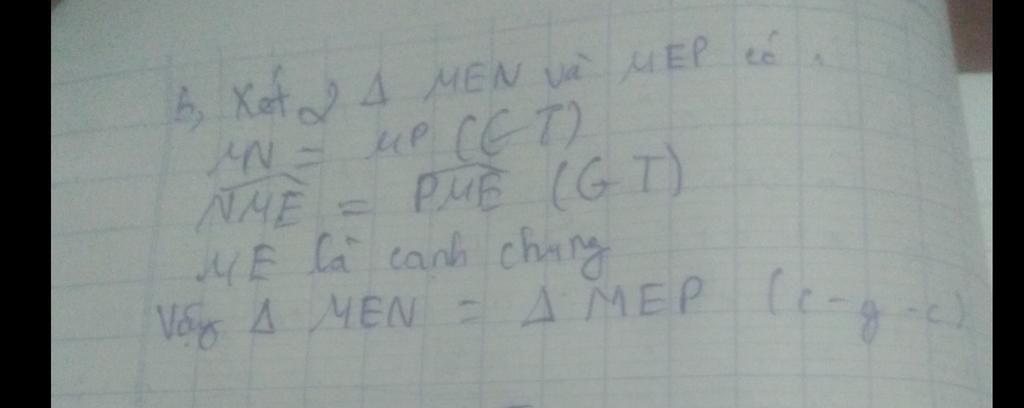 b, Xét 2 Δ MEN và MEP có.
MN = MP (GT)
NME = PME (GT)
ME là cạnh chung
Vậy Δ MEN = Δ MEP (c-g-c)